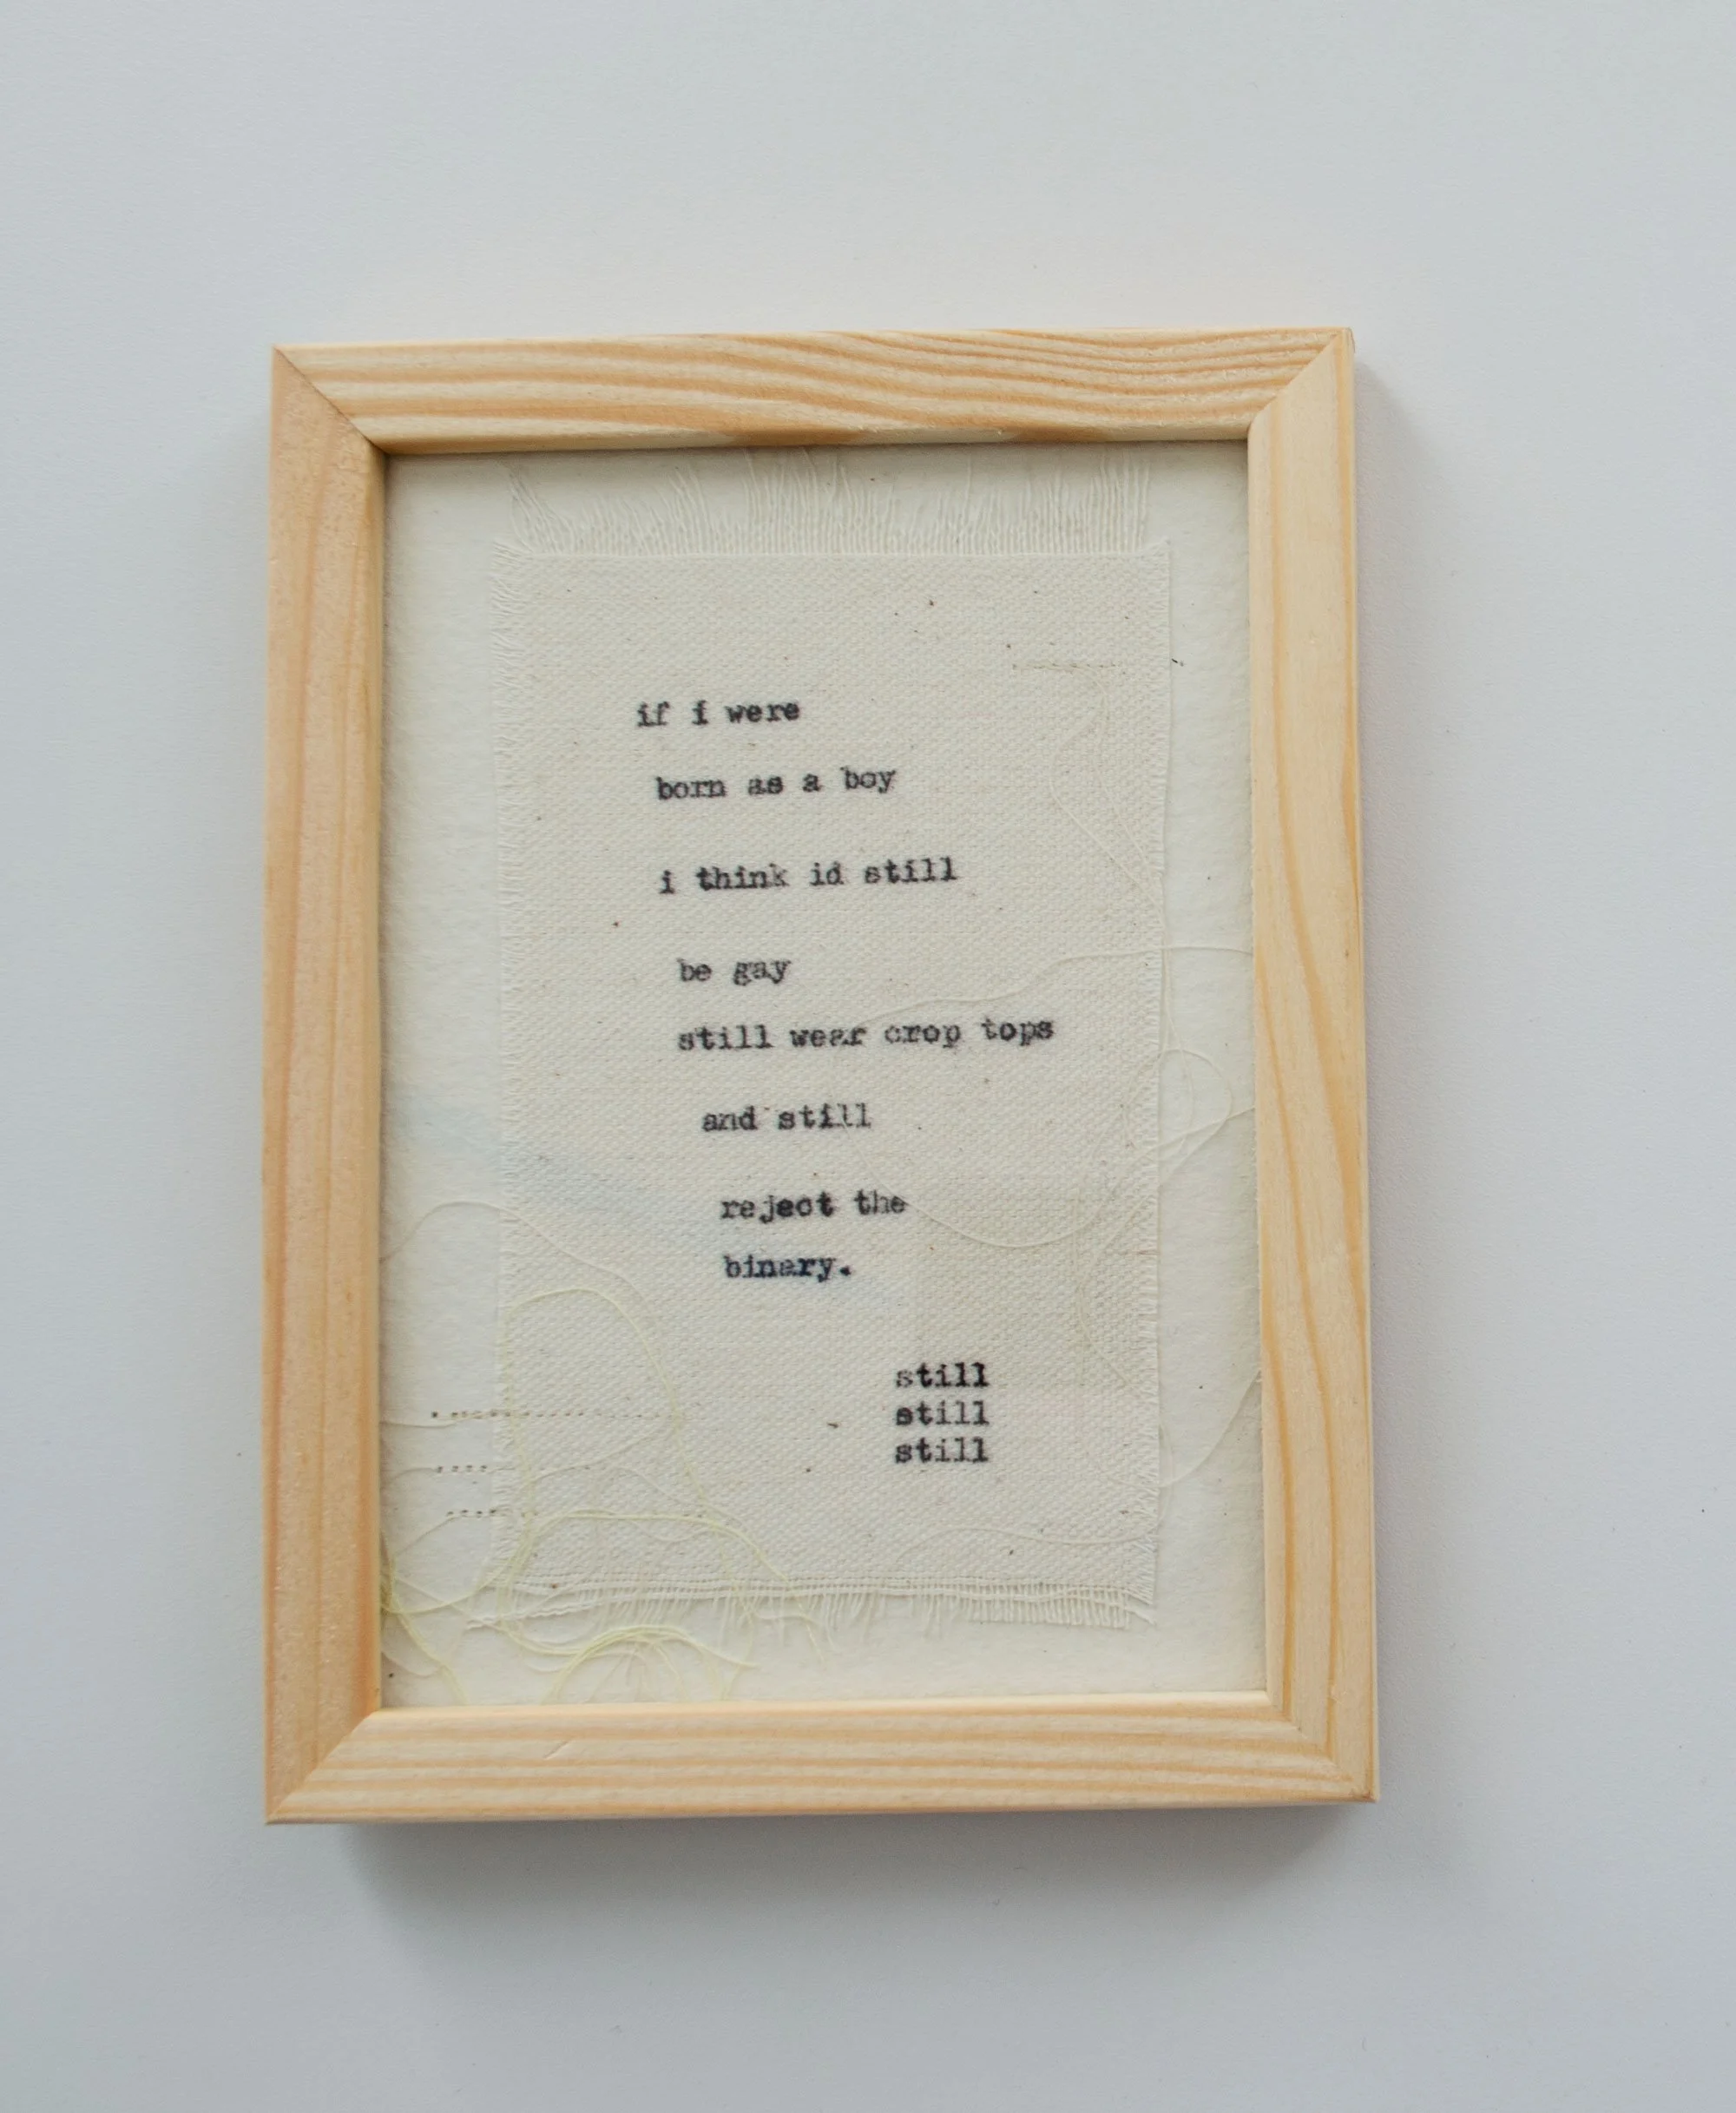 if i were
born as a boy
i think id still
be gay
still wear crop tops
and still
reject the
binary.
still
still
still